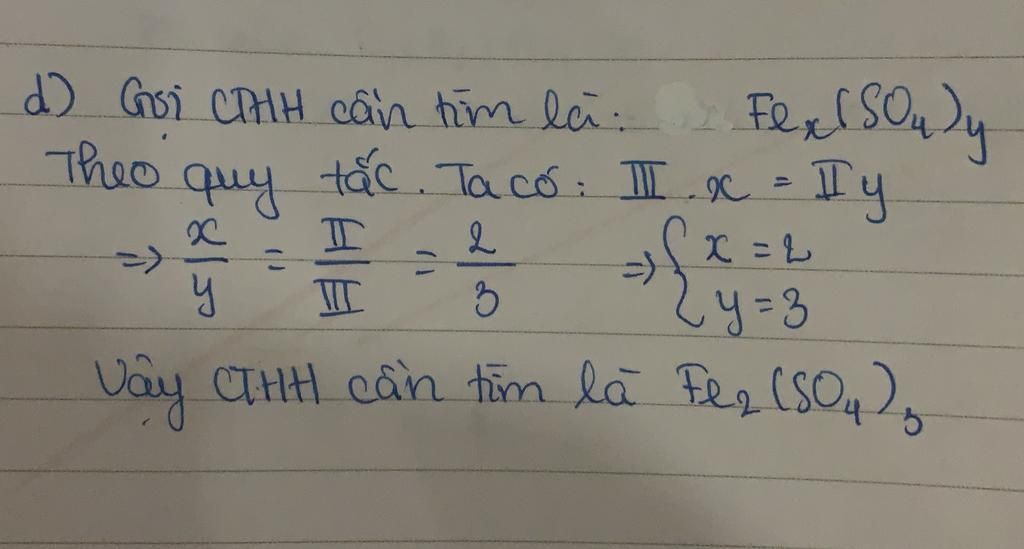 d) Gọi CTHH cần tìm là: Feₓ(SO₄)y
Theo quy tắc. Ta có: III . x = II y
=> x/y = II/III = 2/3 => { x = 2 y = 3
Vậy CTHH cần tìm là Fe₂(SO₄)₃